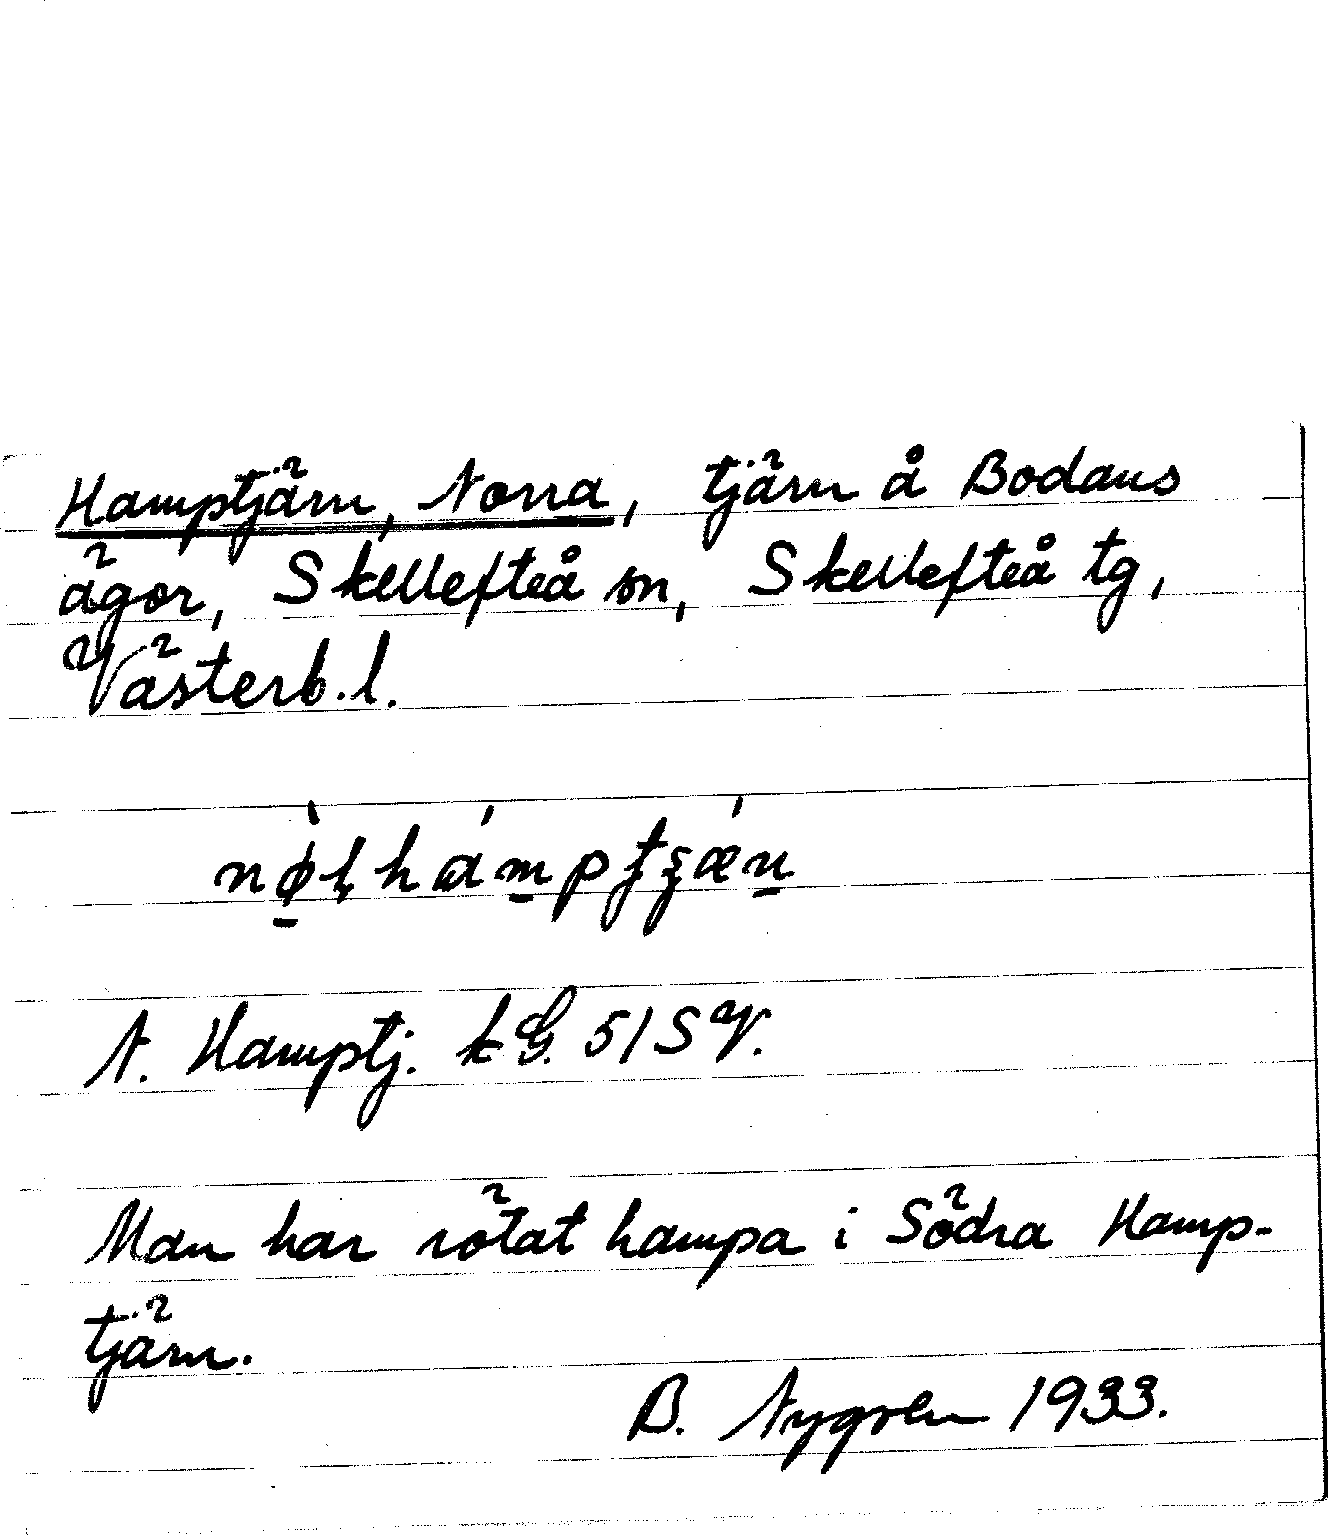 Hamptjärn, Norra, tjärn å Bodans
ägor, Skellefteå sn, Skellefteå tg,
Västerb. l.
N. Hamptj. kG. 51 SV.
Man har rötat hampa i Södra Hamp-
tjärn.
B. Nygren 1933.